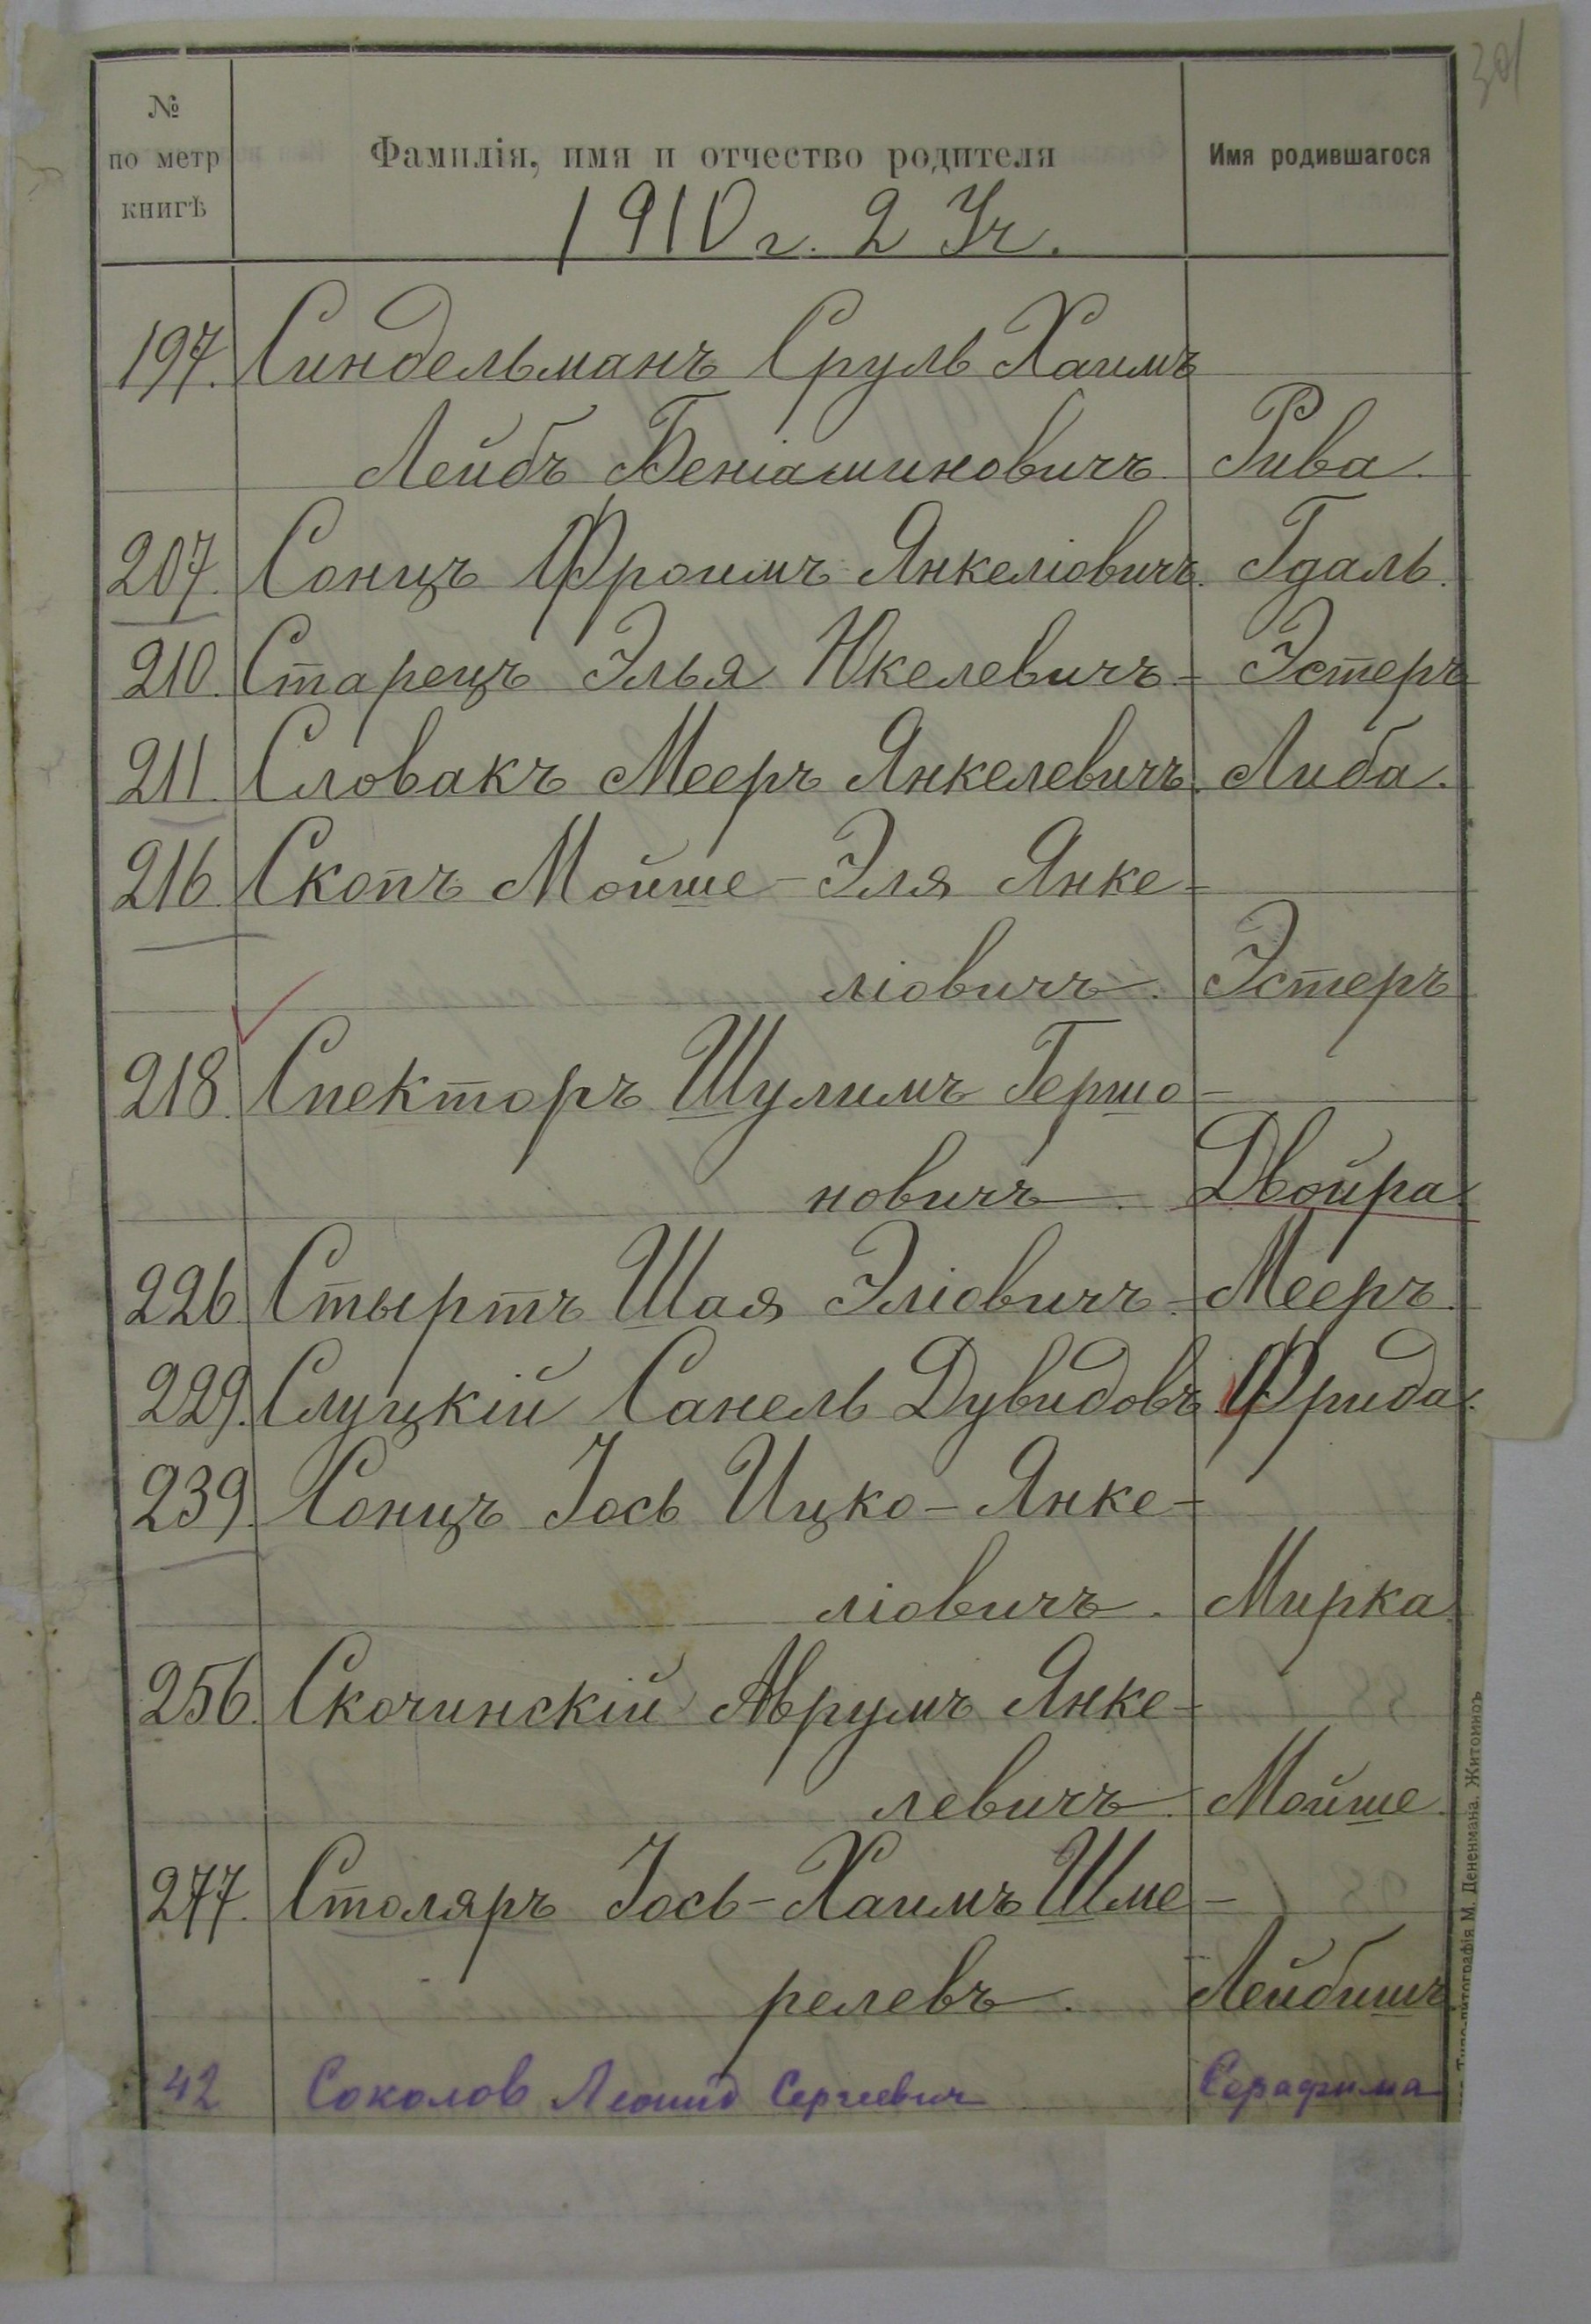 301
№ по метр книгѣ
Фамилія, имя и отчество родителя
Имя родившагося
1910 г. 2 Уч.
197. Синдельманъ Сруль Хаимъ
Лейбъ Беніаминовичъ. Рива.
207. Сонцъ Фроимъ Янкеліовичъ. Гдаль.
210. Старецъ Элья Юкелевичъ - Эстеръ
211. Словакъ Мееръ Янкелевичъ. Либа.
216 Скопъ Мойше-Эля Янке-
ліовичъ. Эстеръ
218. Спекторъ Шулимъ Гершо-
новичъ. Двойра.
226. Стыртъ Шая Эліовичъ. - Мееръ.
229. Слуцкій Санель Дувидовъ. Фрида.
239. Сонцъ Іось Ицко-Янке-
ліовичъ. Мирка
256. Скочинскій Аврумъ Янке-
левичъ. Мойше.
277. Столяръ Іось-Хаимъ Шме-
релевъ. Лейбишъ
42 Соколов Леонид Сергеевич Серафима
Типо-литографія М. Дененмана. Житомиръ